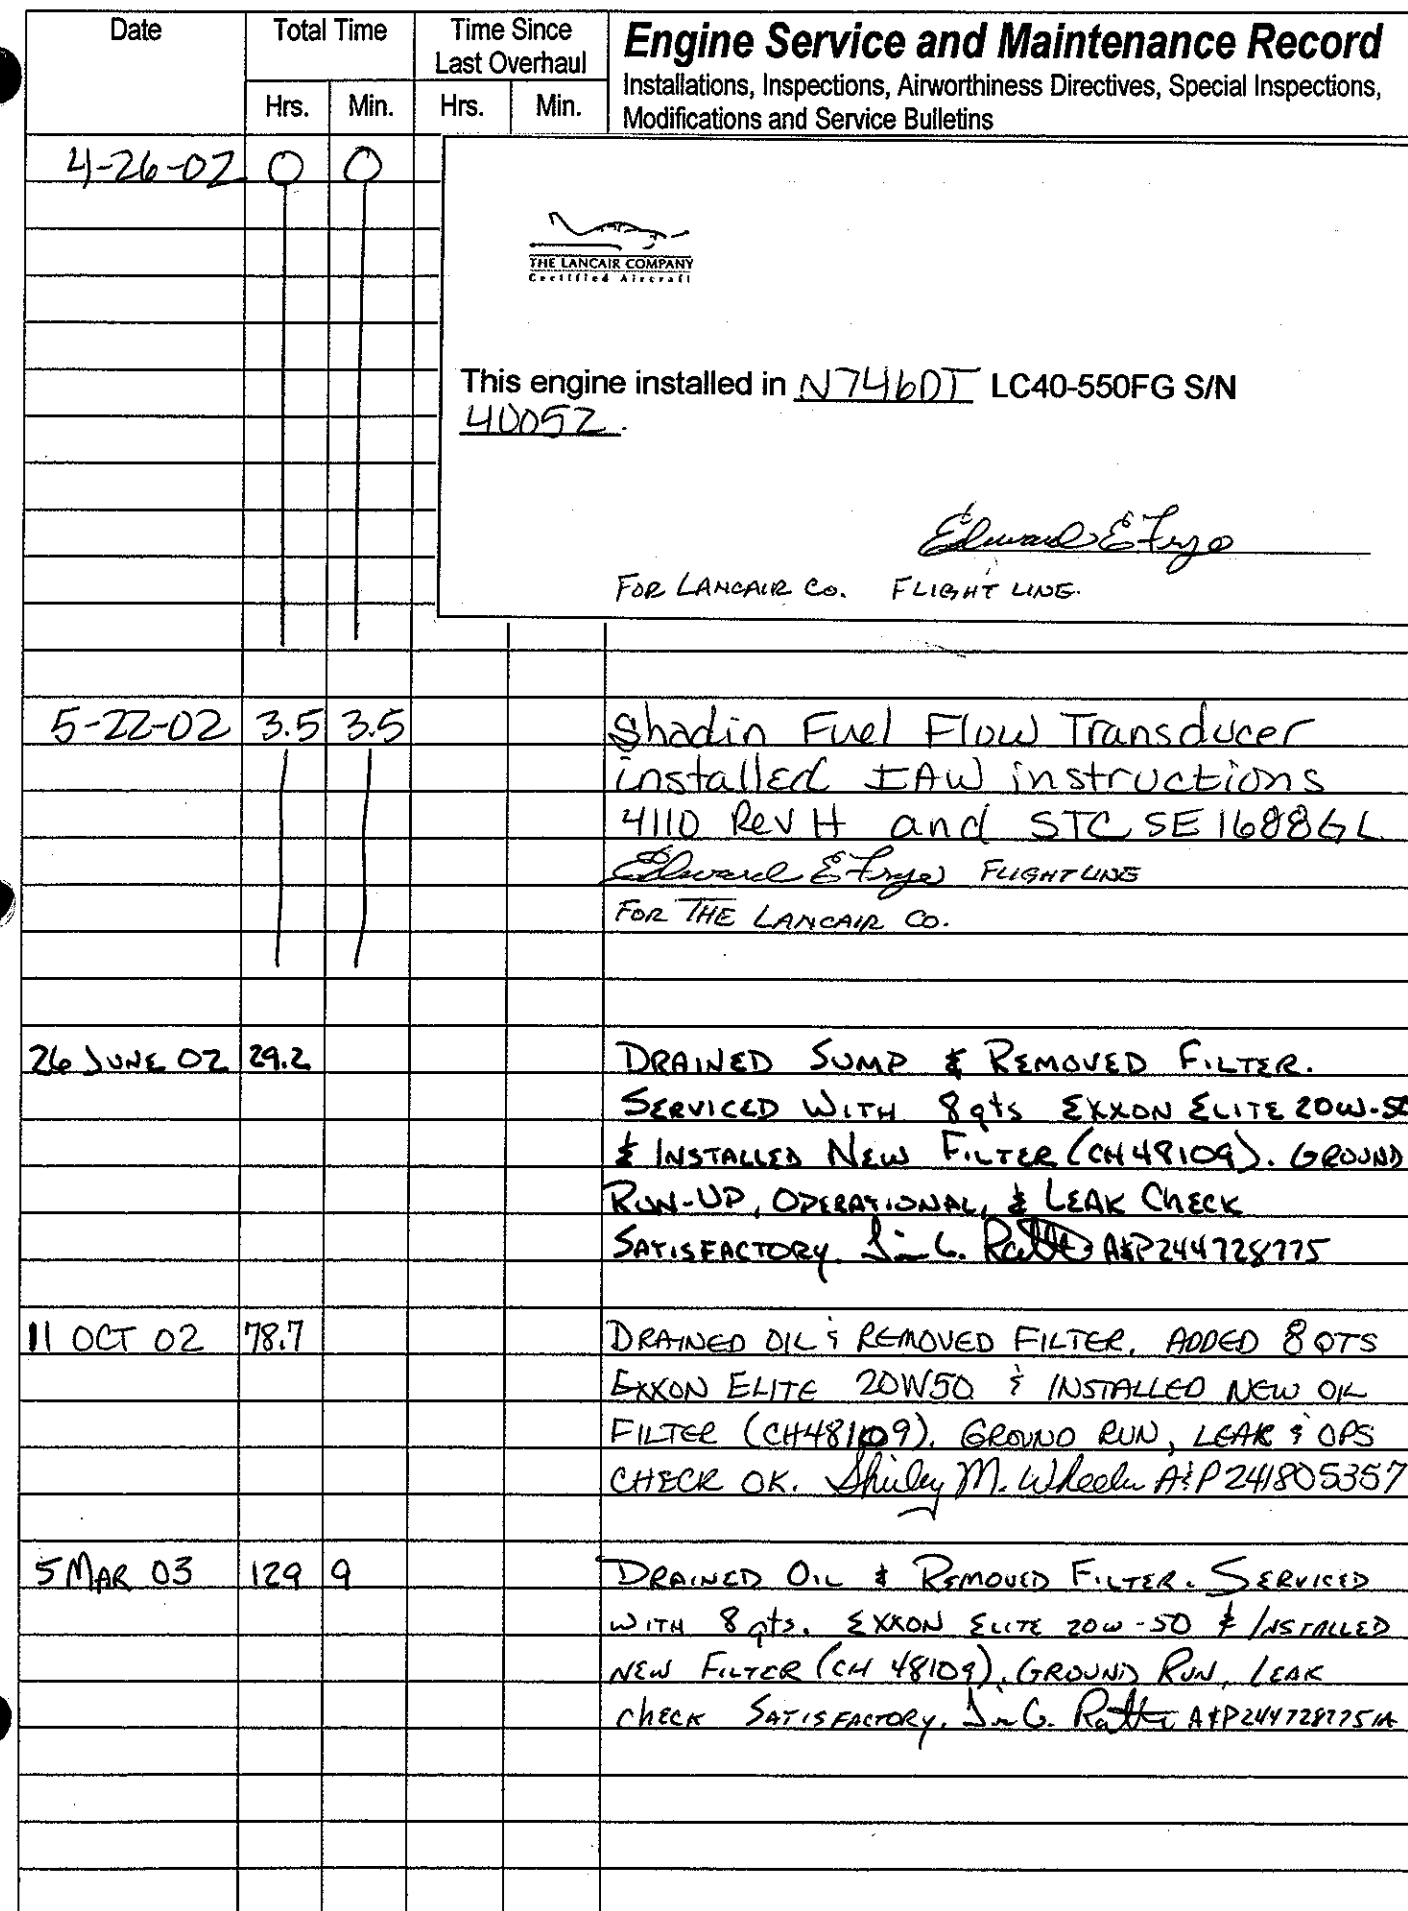 Date Total Time Time Since Last Overhaul Engine Service and Maintenance Record
Installations, Inspections, Airworthiness Directives, Special Inspections,
Hrs. Min. Hrs. Min. Modifications and Service Bulletins
4-26-02 0 0
THE LANCAIR COMPANY
Certified Aircraft
This engine installed in N746DT LC40-550FG S/N
40052.
Edward E Frye
FOR LANCAIR Co. FLIGHT LINE.
5-22-02 3.5 3.5 Shadin Fuel Flow Transducer
installed IAW instructions
4110 Rev H and STC SE1688GL
Edward E Frye FLIGHT LINE
FOR THE LANCAIR CO.
26 JUNE 02 29.2 DRAINED SUMP & REMOVED FILTER.
SERVICED WITH 8 qts EXXON ELITE 20W-50
& INSTALLED NEW FILTER (CH48109). GROUND
RUN-UP, OPERATIONAL, & LEAK CHECK
SATISFACTORY. A&P244728775
11 OCT 02 78.7 DRAINED OIL & REMOVED FILTER. ADDED 8 QTS
EXXON ELITE 20W50 & INSTALLED NEW OIL
FILTER (CH48109). GROUND RUN, LEAK & OPS
CHECK OK. Shirley M. Wheeler A&P 241805357
5 MAR 03 129 9 DRAINED OIL & REMOVED FILTER. SERVICED
WITH 8 qts. EXXON ELITE 20W-50 & INSTALLED
NEW FILTER (CH 48109). GROUND RUN, LEAK
CHECK SATISFACTORY. A&P244728775IA